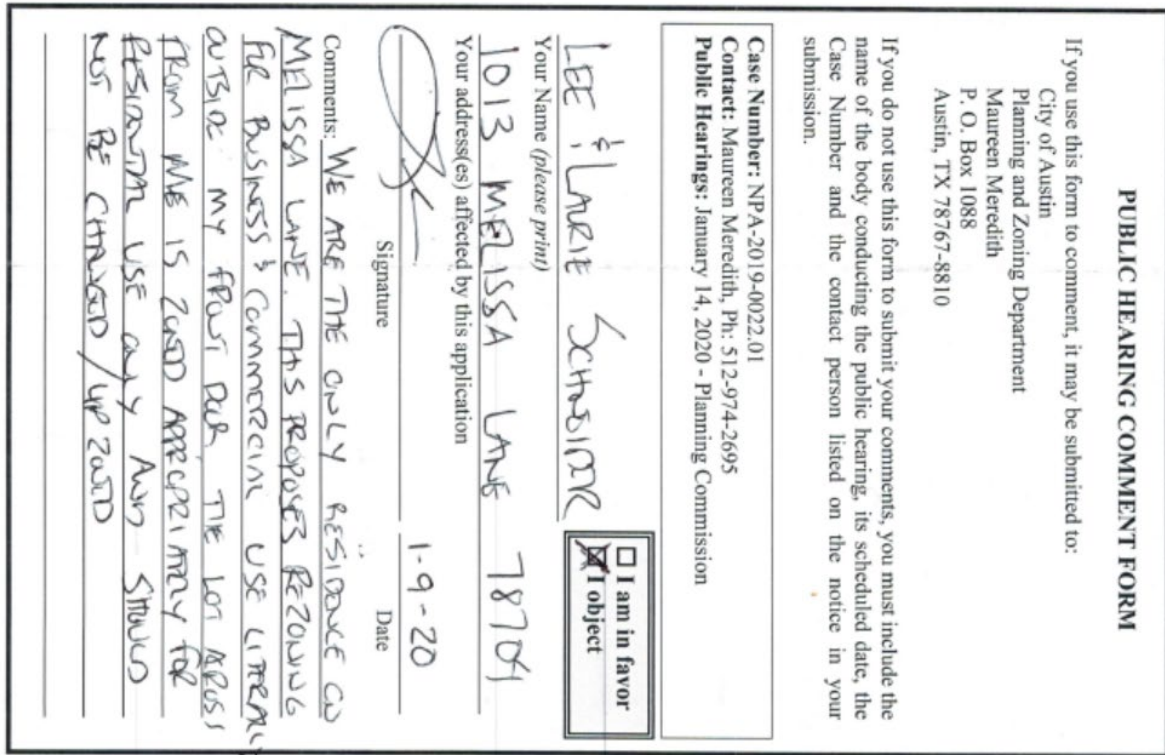 PUBLIC HEARING COMMENT FORM
If you use this form to comment, it may be submitted to:
City of Austin
Planning and Zoning Department
Maureen Meredith
P. O. Box 1088
Austin, TX 78767-8810
If you do not use this form to submit your comments, you must include the
name of the body conducting the public hearing, its scheduled date, the
Case Number and the contact person listed on the notice in your
submission.
Case Number: NPA-2019-0022.01
Contact: Maureen Meredith, Ph: 512-974-2695
Public Hearings: January 14, 2020 - Planning Commission
I am in favor
I object
LEE & LAURIE SCHNEIDER
Your Name (please print)
1013 MELISSA LANE 78704
Your address(es) affected by this application
1-9-20
Signature Date
Comments: WE ARE THE ONLY RESIDENCE ON
MELISSA LANE. THIS PROPOSES REZONING
FOR BUSINESS & COMMERCIAL USE LITERALLY
OUTSIDE MY FRONT DOOR THE LOT ACROSS
FROM ME IS ZONED APPROPRIATELY FOR
RESIDENTIAL USE ONLY AND SHOULD
NOT BE CHANGED / UP ZONED